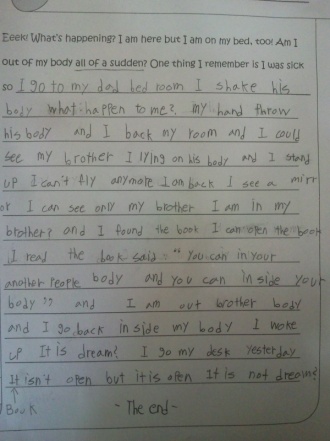 Eeek! What's happening? I am here but I am on my bed, too! Am I
out of my body all of a sudden? One thing I remember is I was sick
so I go to my dad bed room I shake his
body what happen to me?. my hand throw
his body and I back my room and I could
see my brother I lying on his body and I stand
up I can't fly anymore I on back I see a mirr
or I can see only my brother I am in my
brother? and I found the book I can open the book
I read the book said : "You can in your
another people body and you can in side your
body" and I am out brother body
and I go back in side my body I woke
up It is dream? I go my desk yesterday
It isn't open but it is open It is not dream?
↑
Book - The end -